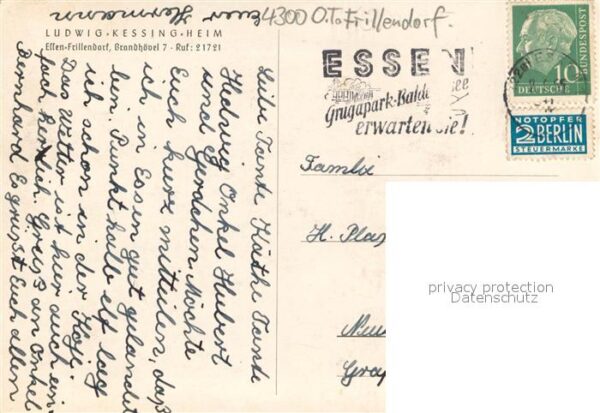 4300 O.T. Frillendorf.
LUDWIG-KESSING-HEIM
Essen-Frillendorf, Brandhövel 7 · Ruf: 21721
Liebe Tante Käthe Tante
Hedwig Onkel Hubert
und Gerdchen Möchte
Euch kurz mitteilen, daß
ich in Essen gut gelandet
bin. Punkt halb elf lag
ich schon in der Koje.
Das Wetter ist hier auch ein-
fach herrlich. Grüß an Onkel
Bernhard Es grüßt Euch allen
Euer Hermann
ESSEN
Grugapark-Balde see
erwarten Sie!
10
DEUTSCHE
BUNDESPOST
NOTOPFER
2 BERLIN
STEUERMARKE
Familie
H. Pla
privacy protection
Datenschutz